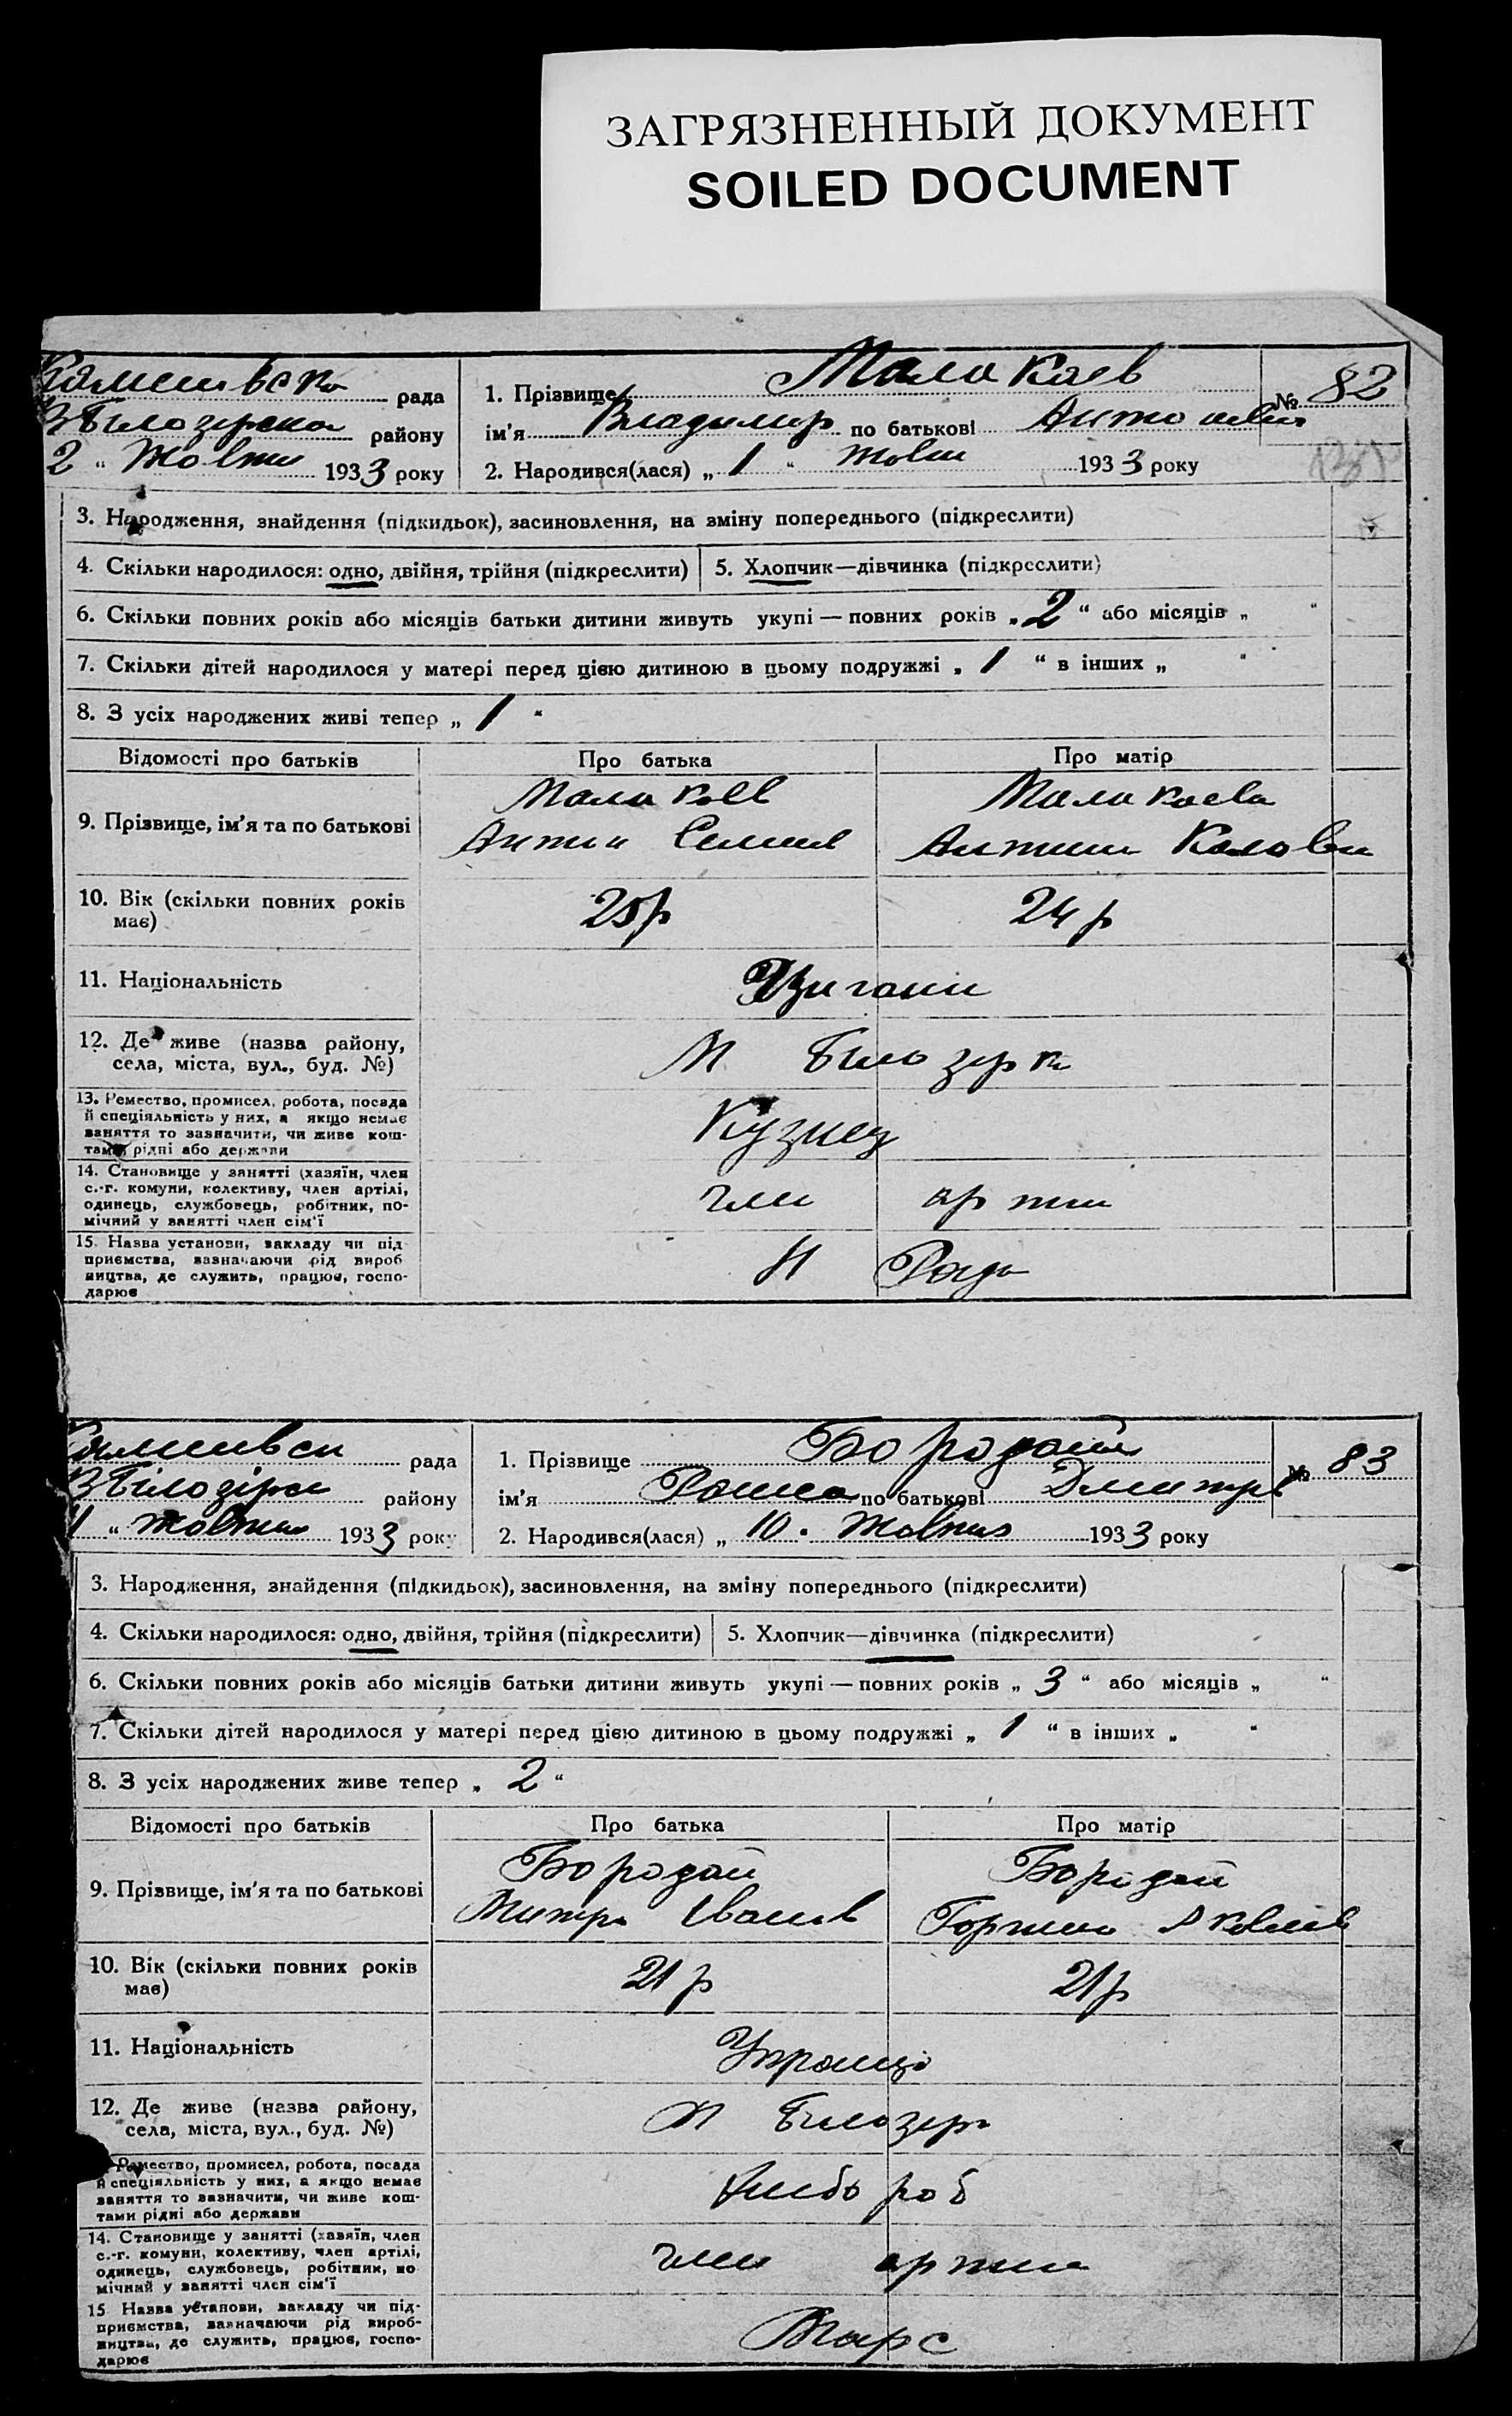 ЗАГРЯЗНЕННЫЙ ДОКУМЕНТ
SOILED DOCUMENT
рада
району
2 " Жовтн 1933 року
1. Прізвище Малакаев
№ 82
ім'я Владимир по батькові
2. Народився(лася) „ 1 " Жовтн 1933 року
3. Народження, знайдення (підкидьок), засиновлення, на зміну попереднього (підкреслити)
4. Скільки народилося: одно, двійня, трійня (підкреслити) 5. Хлопчик—дівчинка (підкреслити)
6. Скільки повних років або місяців батьки дитини живуть укупі — повних років „ 2 " або місяців „ "
7. Скільки дітей народилося у матері перед цією дитиною в цьому подружжі „ 1 " в інших „ "
8. З усіх народжених живі тепер „ 1 "
Відомості про батьків Про батька Про матір
9. Прізвище, ім'я та по батькові
Малакаев Малакаева
Антон
10. Вік (скільки повних років має) 25р 24р
11. Національність Цигани
12. Де живе (назва району, села, міста, вул., буд. №)
Білозерк
13. Ремество, промисел, робота, посада
й спеціяльність у них, а якщо немає
заняття то зазначити, чи живе кош-
тами рідні або держави
Кузнец
14. Становище у занятті (хазяїн, член
с.-г. комуни, колективу, член артілі,
одинець, службовець, робітник, по-
мічний у занятті член сім'ї
член артіл
15. Назва установи, закладу чи під-
приємства, зазначаючи рід вироб
ництва, де служить, працює, госпо-
дарює
рада
району
" Жовтня 1933 року
1. Прізвище Бородай
№ 83
ім'я по батькові Дмитрів
2. Народився(лася) „ 10 " Жовтня 1933 року
3. Народження, знайдення (підкидьок), засиновлення, на зміну попереднього (підкреслити)
4. Скільки народилося: одно, двійня, трійня (підкреслити) 5. Хлопчик—дівчинка (підкреслити)
6. Скільки повних років або місяців батьки дитини живуть укупі — повних років „ 3 " або місяців „ "
7. Скільки дітей народилося у матері перед цією дитиною в цьому подружжі „ 1 " в інших „ "
8. З усіх народжених живе тепер „ 2 "
Відомості про батьків Про батька Про матір
9. Прізвище, ім'я та по батькові
Бородай Бородай
Митро Іванів Яковлів
10. Вік (скільки повних років має) 21р 21р
11. Національність Украинці
12. Де живе (назва району, села, міста, вул., буд. №)
Білозер
Ремество, промисел, робота, посада
й спеціяльність у них, а якщо немає
заняття то зазначити, чи живе кош-
тами рідні або держави
хлібороб
14. Становище у занятті (хазяїн, член
с.-г. комуни, колективу, член артілі,
одинець, службовець, робітник, по
мічний у занятті член сім'ї
член артіл
15 Назва установи, закладу чи під-
приємства, зазначаючи рід вироб-
ництва, де служить, працює, госпо-
дарює
Маркс